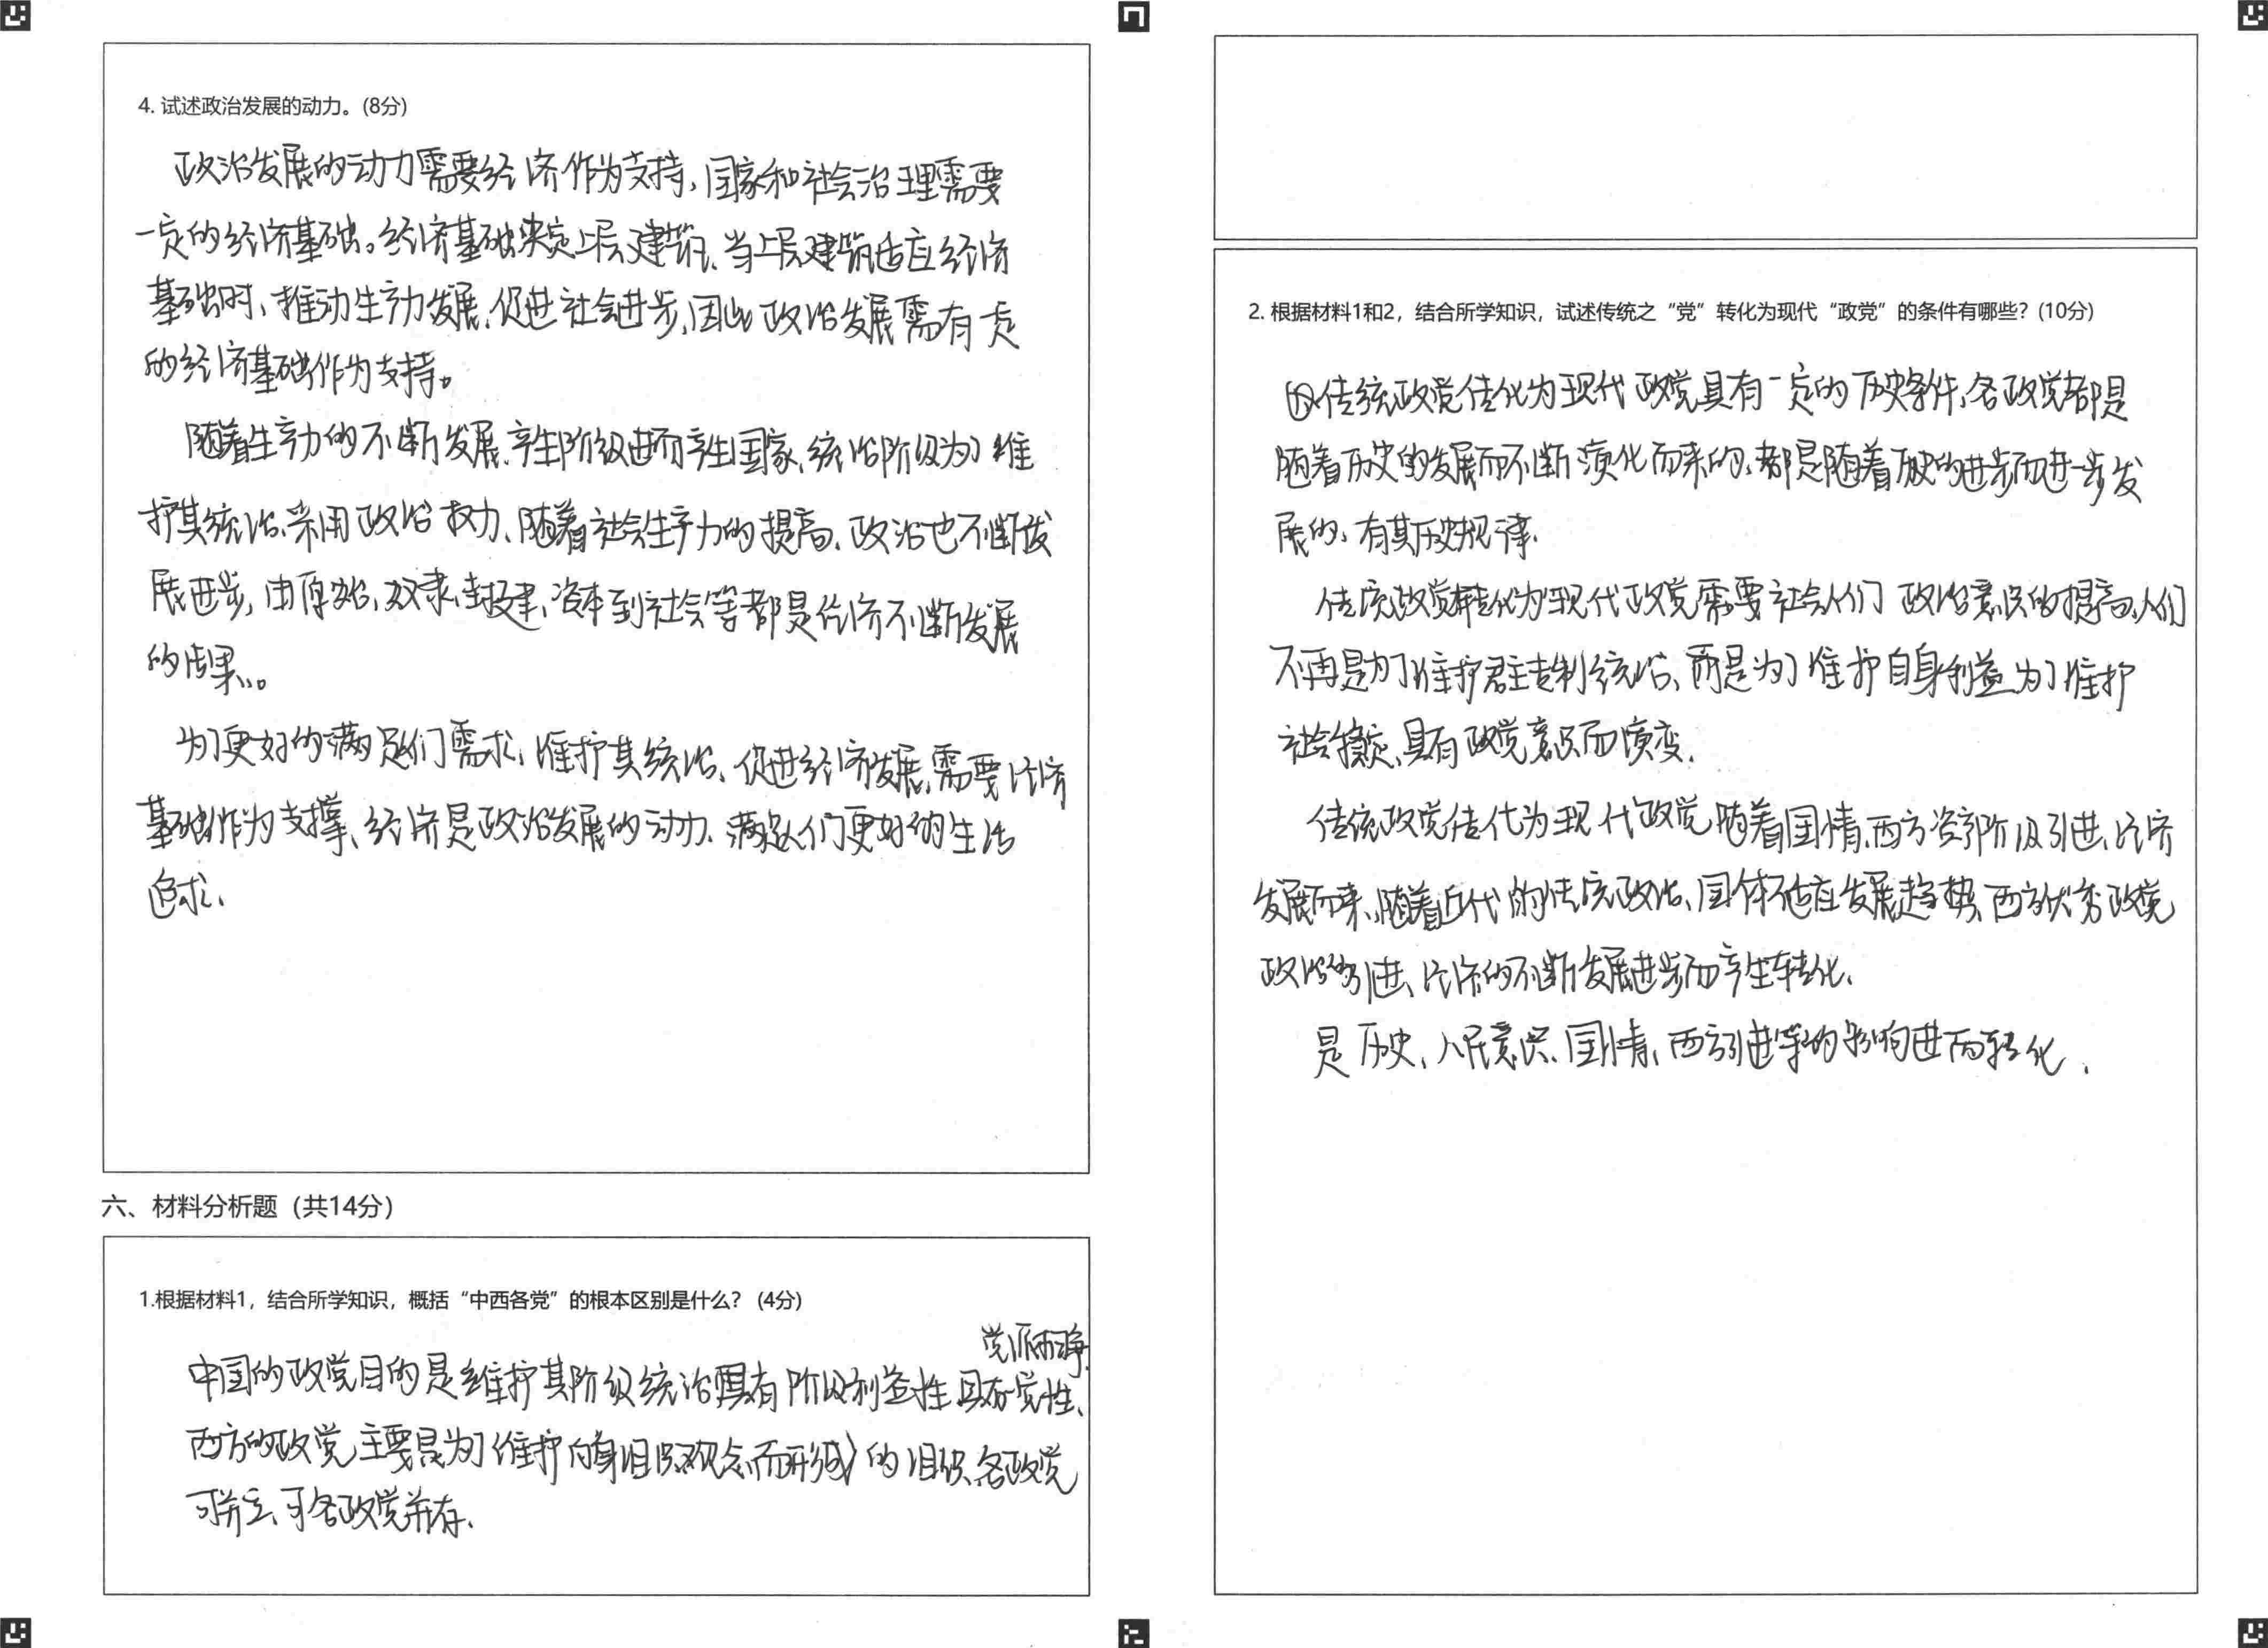 4. 试述政治发展的动力。(8分)
政治发展的动力需要经济作为支持，国家和社会治理需要
一定的经济基础。经济基础决定上层建筑、当上层建筑适应经济
基础时、推动生产力发展、促进社会进步、因此政治发展需有一定
的经济基础作为支持。
随着生产力的不断发展、产生阶级进而产生国家、统治阶级为了维
护其统治、采用政治权力、随着社会生产力的提高、政治也不断发
展进步，由原始、奴隶、封建、资本到社会等都是经济不断发展
的结果。
为了更好的满足人们需求、维护其统治、促进经济发展、需要经济
基础作为支撑、经济是政治发展的动力、满足人们更好的生活
追求、
六、材料分析题（共14分）
1.根据材料1，结合所学知识，概括“中西各党”的根本区别是什么？ (4分)
党派而争
中国的政党目的是维护其阶级统治具有阶级利益性、具有党性、
西方的政党主要是为了维护自身观念而形成的组织、各政党
可并立、可各政党并存、
2. 根据材料1和2，结合所学知识，试述传统之“党”转化为现代“政党”的条件有哪些？(10分)
传统政党转化为现代政党具有一定的历史条件、各政党都是
随着历史的发展而不断演化而来的、都是随着历史的进步而进一步发
展的、有其历史规律、
传统政党转化为现代政党需要社会人们政治意识的提高、人们
不再是为了维护君主专制统治、而是为了维护自身利益为了维护
社会稳定、具有政党意识而演变、
传统政党转化为现代政党随着国情、西方资产阶级引进、经济
发展而来、随着近代的传统政治、国体不适应发展趋势、西方优秀政党
政治的引进、经济的不断发展进步而产生转化、
是历史、人民意识、国情、西方引进等的影响进而转化、